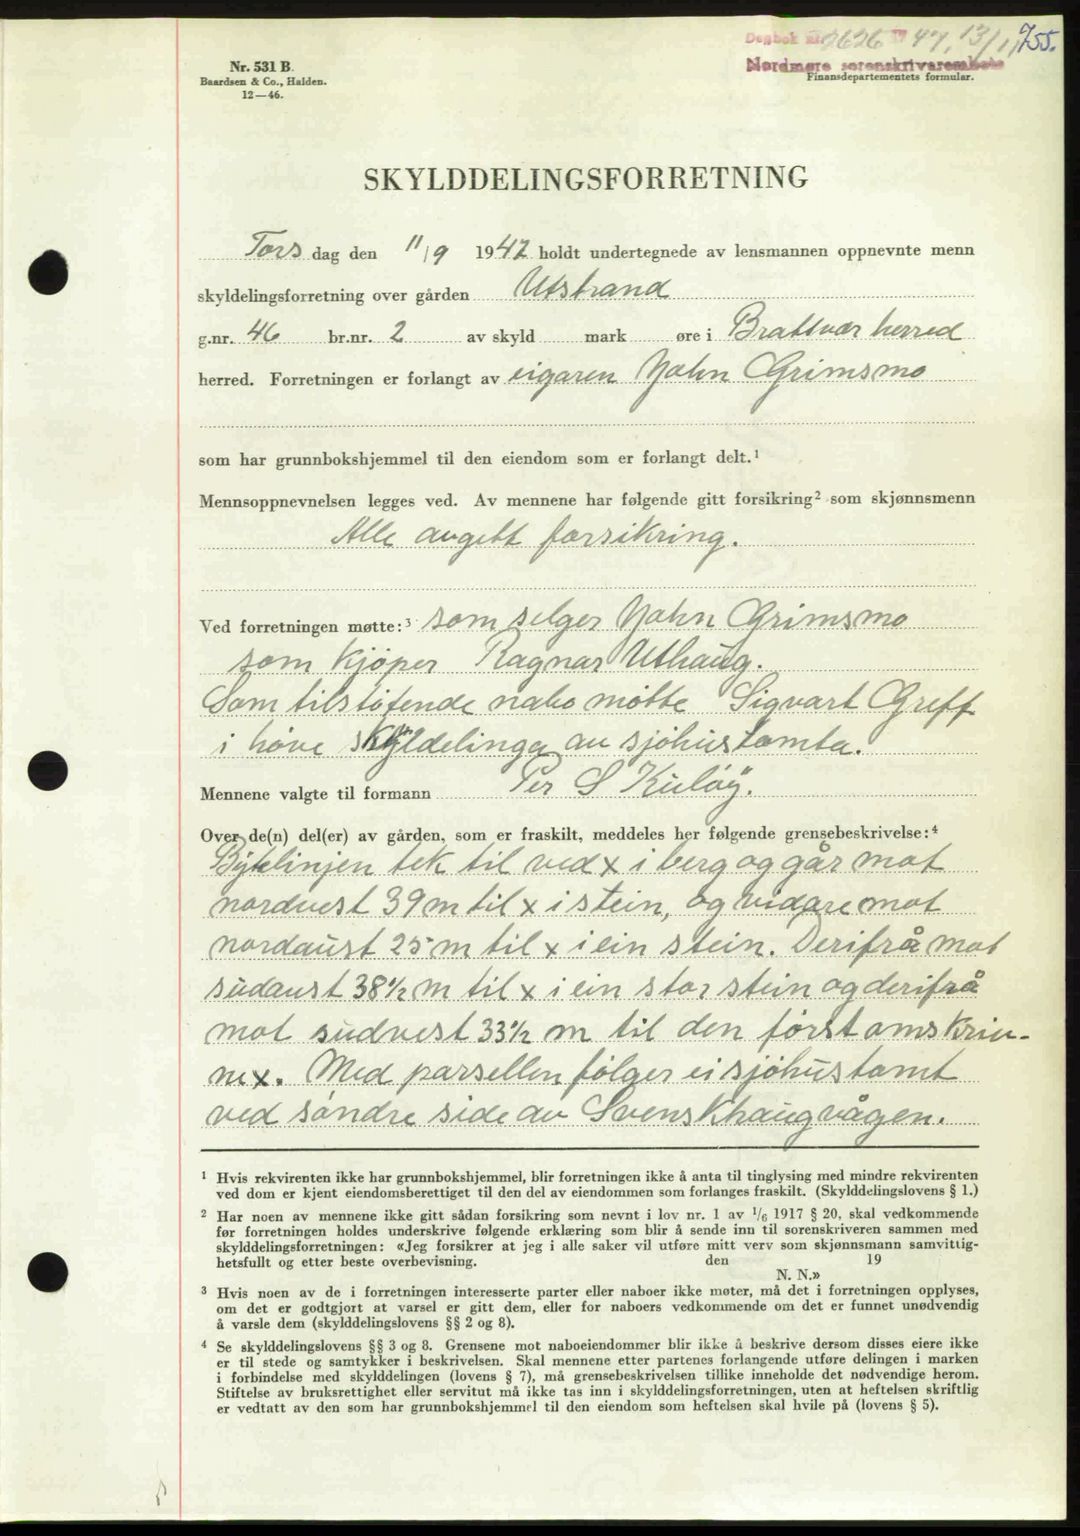 Dagbok nr. 2626 19 47, 13/11 755.
Nordmøre sorenskrivarembete
Nr. 531 B.
Baardsen & Co., Halden.
12—46.
Finansdepartementets formular.
SKYLDDELINGSFORRETNING
Tors dag den 11/9 1947 holdt undertegnede av lensmannen oppnevnte menn
skyldelingsforretning over gården Utstrand
g.nr. 46 br.nr. 2 av skyld mark øre i Brattvær herred
herred. Forretningen er forlangt av eigaren John Grimsmo
som har grunnbokshjemmel til den eiendom som er forlangt delt.¹
Mennsoppnevnelsen legges ved. Av mennene har følgende gitt forsikring² som skjønnsmenn
Alle avgett forsikring.
Ved forretningen møtte:³ som selger John Grimsmo
som kjöper Ragnar Uthaug.
Som tilstötende nabo mötte Sigvart Greff
i höve skyldelinga av sjöhustomta.
Mennene valgte til formann Per S Kulöy.
Over de(n) del(er) av gården, som er fraskilt, meddeles her følgende grensebeskrivelse:⁴
Býtelinjen tek til ved x i berg og går mot
nordvest 39 m til x i stein, og vidare mot
nordaust 25 m til x i ein stein. Derifrå mot
südaust 38½ m til x i ein stor stein og derifrå
mot südvest 33½ m til den först omskriv-
ne x. Med parsellen fölger ei sjöhustomt
ved söndre side av Svenskhaugvågen.
¹ Hvis rekvirenten ikke har grunnbokshjemmel, blir forretningen ikke å anta til tinglysing med mindre rekvirenten
ved dom er kjent eiendomsberettiget til den del av eiendommen som forlanges fraskilt. (Skylddelingslovens § 1.)
² Har noen av mennene ikke gitt sådan forsikring som nevnt i lov nr. 1 av 1/6 1917 § 20, skal vedkommende
før forretningen holdes underskrive følgende erklæring som blir å sende inn til sorenskriveren sammen med
skylddelingsforretningen: «Jeg forsikrer at jeg i alle saker vil utføre mitt verv som skjønnsmann samvittig-
hetsfullt og etter beste overbevisning. den 19
N. N.»
³ Hvis noen av de i forretningen interesserte parter eller naboer ikke møter, må det i forretningen opplyses,
om det er godtgjort at varsel er gitt dem, eller for naboers vedkommende om det er funnet unødvendig
å varsle dem (skylddelingslovens §§ 2 og 8).
⁴ Se skylddelingslovens §§ 3 og 8. Grensene mot naboeiendommer blir ikke å beskrive dersom disses eiere ikke
er til stede og samtykker i beskrivelsen. Skal mennene etter partenes forlangende utføre delingen i marken
i forbindelse med skylddelingen (lovens § 7), må grensebeskrivelsen tillike inneholde det nødvendige herom.
Stiftelse av bruksrettighet eller servitut må ikke tas inn i skylddelingsforretningen, uten at heftelsen skriftlig
er vedtatt av den som har grunnbokshjemmel til den eiendom som heftelsen skal hvile på (lovens § 5).